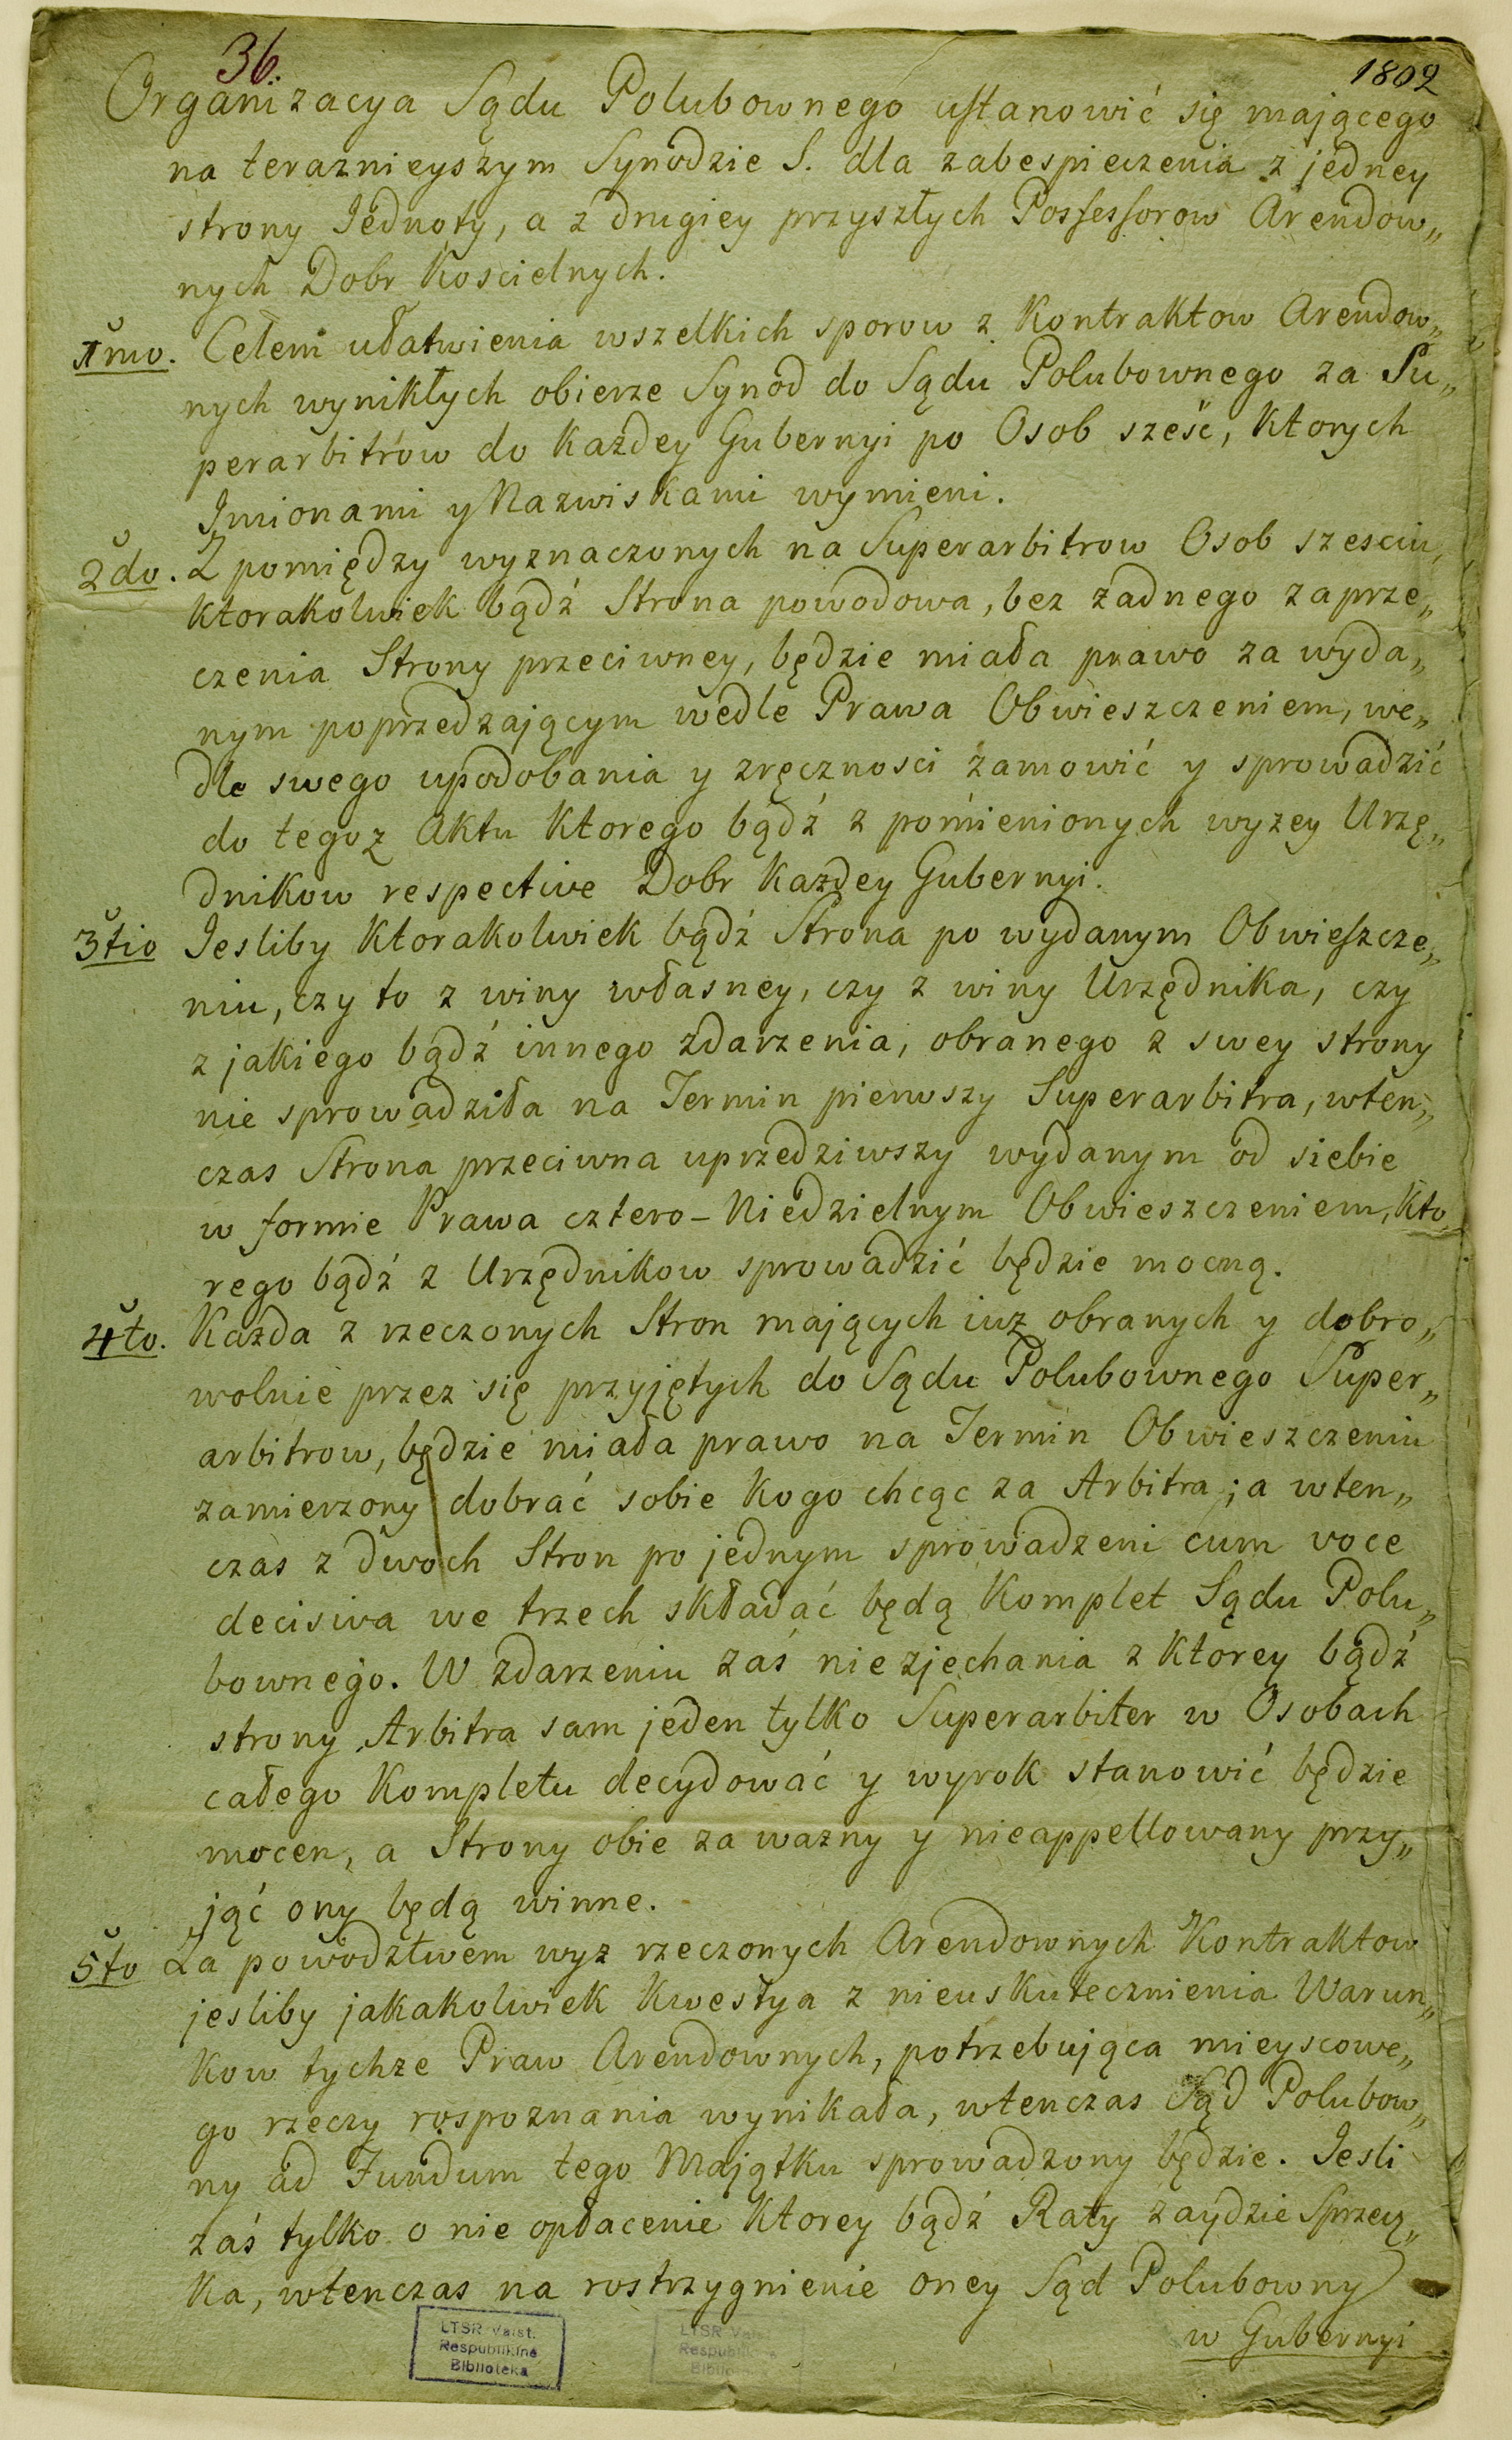 36.
1802
Organizacya Sądu Polubownego ustanowić się mającego
na teraznieyszym Synodzie S. dla zabespieczenia z jedney
strony Jednoty, a z drugiey przyszłych Possessorow Arendow„
nych Dobr Koscielnych.
1mo. Celem ułatwienia wszelkich sporow z Kontraktow Arendow„
nych wynikłych obierze Synod do Sądu Polubownego za Su„
perarbitrów do Każdey Gubernyi po Osob sześć, Ktorych
Imionami y Nazwiskami wymieni.
2do. Z pomiędzy wyznaczonych na Superarbitrow Osob szesciu,
Ktorakolwiek bądź Strona powodowa, bez żadnego zaprze„
czenia Strony przeciwney, będzie miała prawo za wyda„
nym poprzedzającym wedle Prawa Obwieszczeniem, we„
dle swego upodobania y zręcznosci zamowić y sprowadzić
do tegoż Aktu Ktorego bądź z pomienionych wyżey Urzę„
dnikow respective Dobr Każdey Gubernyi.
3tio Jesliby Ktorakolwiek bądź Strona po wydanym Obwieszcze„
niu, czy to z winy własney, czy z winy Urzędnika, czy
z jakiego bądź innego zdarzenia, obranego z swey strony
nie sprowadziła na Termin pierwszy Superarbitra, wten„
czas Strona przeciwna uprzedziwszy wydanym od siebie
w formie Prawa cztero-Niedzielnym Obwieszczeniem, Kto„
rego bądź z Urzędnikow sprowadzić będzie mocną.
4to. Każda z rzeczonych Stron mających iuż obranych y dobro„
wolnie przez się przyjętych do Sądu Polubownego Super„
arbitrow, będzie miała prawo na Termin Obwieszczeniu
zamierzony dobrać sobie Kogo chcąc za Arbitra; a wten„
czas z dwoch Stron po jednym sprowadzeni cum voce
decisiva we trzech składać będą Komplet Sądu Polu„
bownego. W zdarzeniu zaś niezjechania z Ktorey bądź
strony Arbitra sam jeden tylko Superarbiter w Osobach
całego Kompletu decydować y wyrok stanowić będzie
mocen, a Strony obie za wazny y nieappellowany przy„
jąć ony będą winne.
5to Za powodztwem wyż rzeczonych Arendownych Kontraktow
jesliby jakakolwiek Kwestya z nieuskutecznienia Warun„
Kow tychże Praw Arendownych, potrzebująca mieyscowe„
go rzeczy rospoznania wynikała, wtenczas Sąd Polubow„
ny ad Fundum tego Majątku sprowadzony będzie. Jesli
zaś tylko o nie opłacenie Ktorey bądź Raty zaydzie Sprzecz„
Ka, wtenczas na rostrzygnienie oney Sąd Polubowny
w Gubernyi
LTSR Valst.
Respublikinė
Biblioteka
LTSR Valst.
Respublikinė
Biblioteka